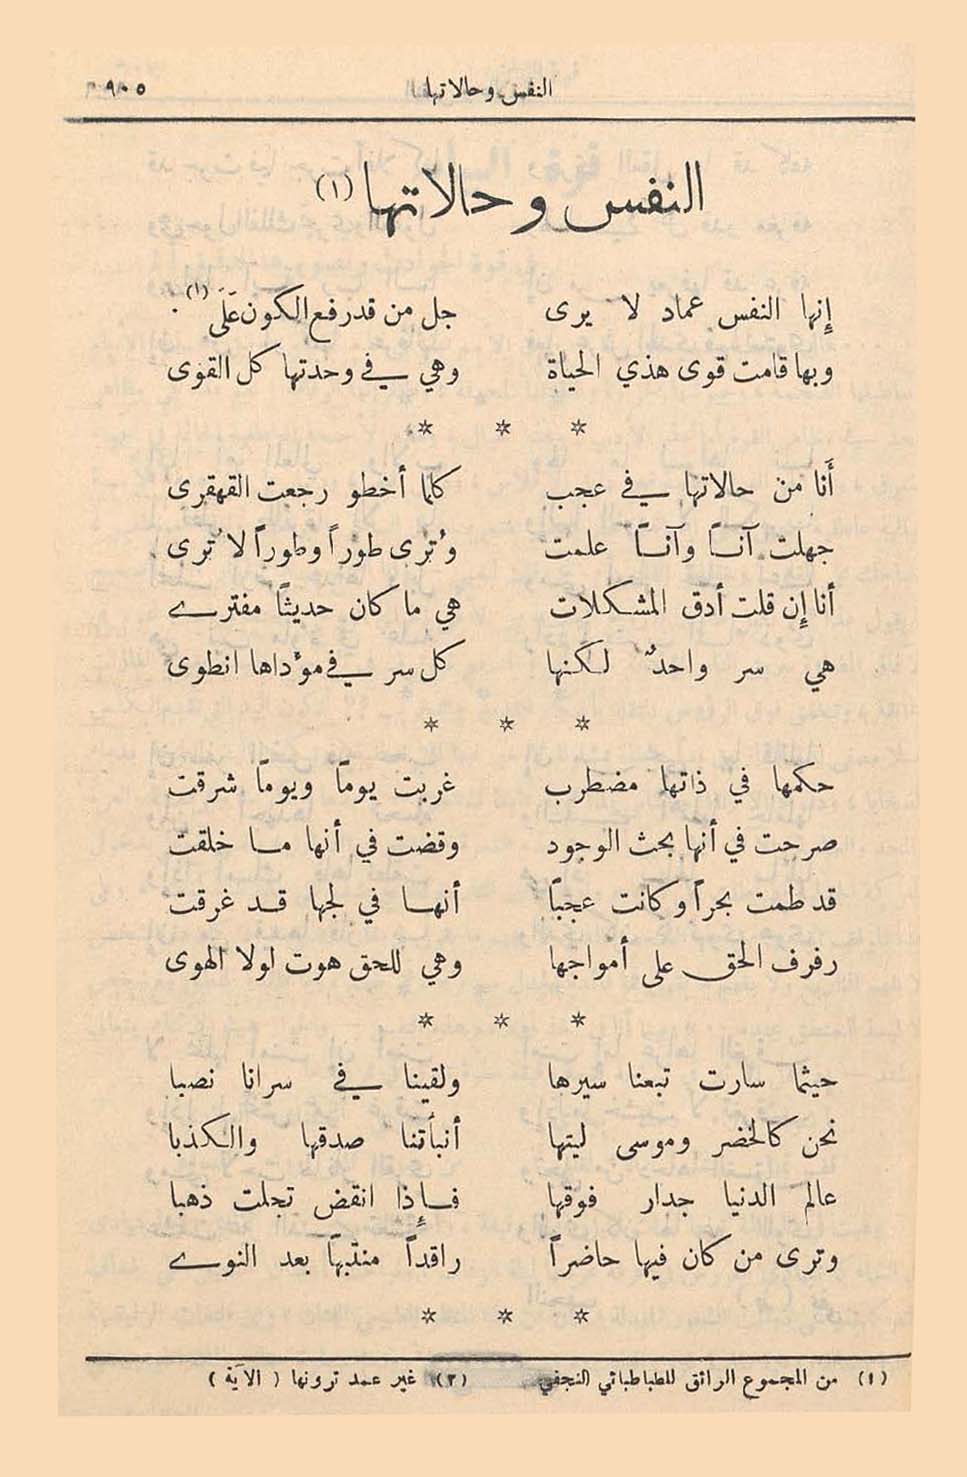 النفس وحالاتها
النفس وحالاتها (١)
إنها النفس عماد لا يرى جل من قدرفع الكون عَلَى (١)
وبها قامت قوى هذي الحياة وهي في وحدتها كل القوى
* * *
أَنا من حالاتها في عجب كلما أخطو رجعت القهقرى
جهلت آناً وآناً علمت وتُرى طوراً وطوراً لا تُرى
أنا إن قلت أدق المشكلات هي ما كان حديثاً مفترى
هي سر واحدٌ لكنها كل سر في مؤداها انطوى
* * *
حكمها في ذاتها مضطرب غربت يوماً ويوماً شرقت
صرحت في أنها بحث الوجود وقضت في أنها ما خلقت
قد طمت بحراً وكانت عجباً أنها في لجها قد غرقت
رفرف الحق على أمواجها وهي للحق هوت لولا الهوى
* * *
حيثما سارت تبعنا سيرها ولقينا في سرانا نصبا
نحن كالخضر وموسى ليتها أنبأتنا صدقها والكذبا
عالم الدنيا جدار فوقها فإذا انقض تجلت ذهبا
وترى من كان فيها حاضراً راقداً منتبهاً بعد النوى
* * *
(١) من المجموع الرائق للطباطبائي النجفي (٢) غير عمد ترونها ( الآية )